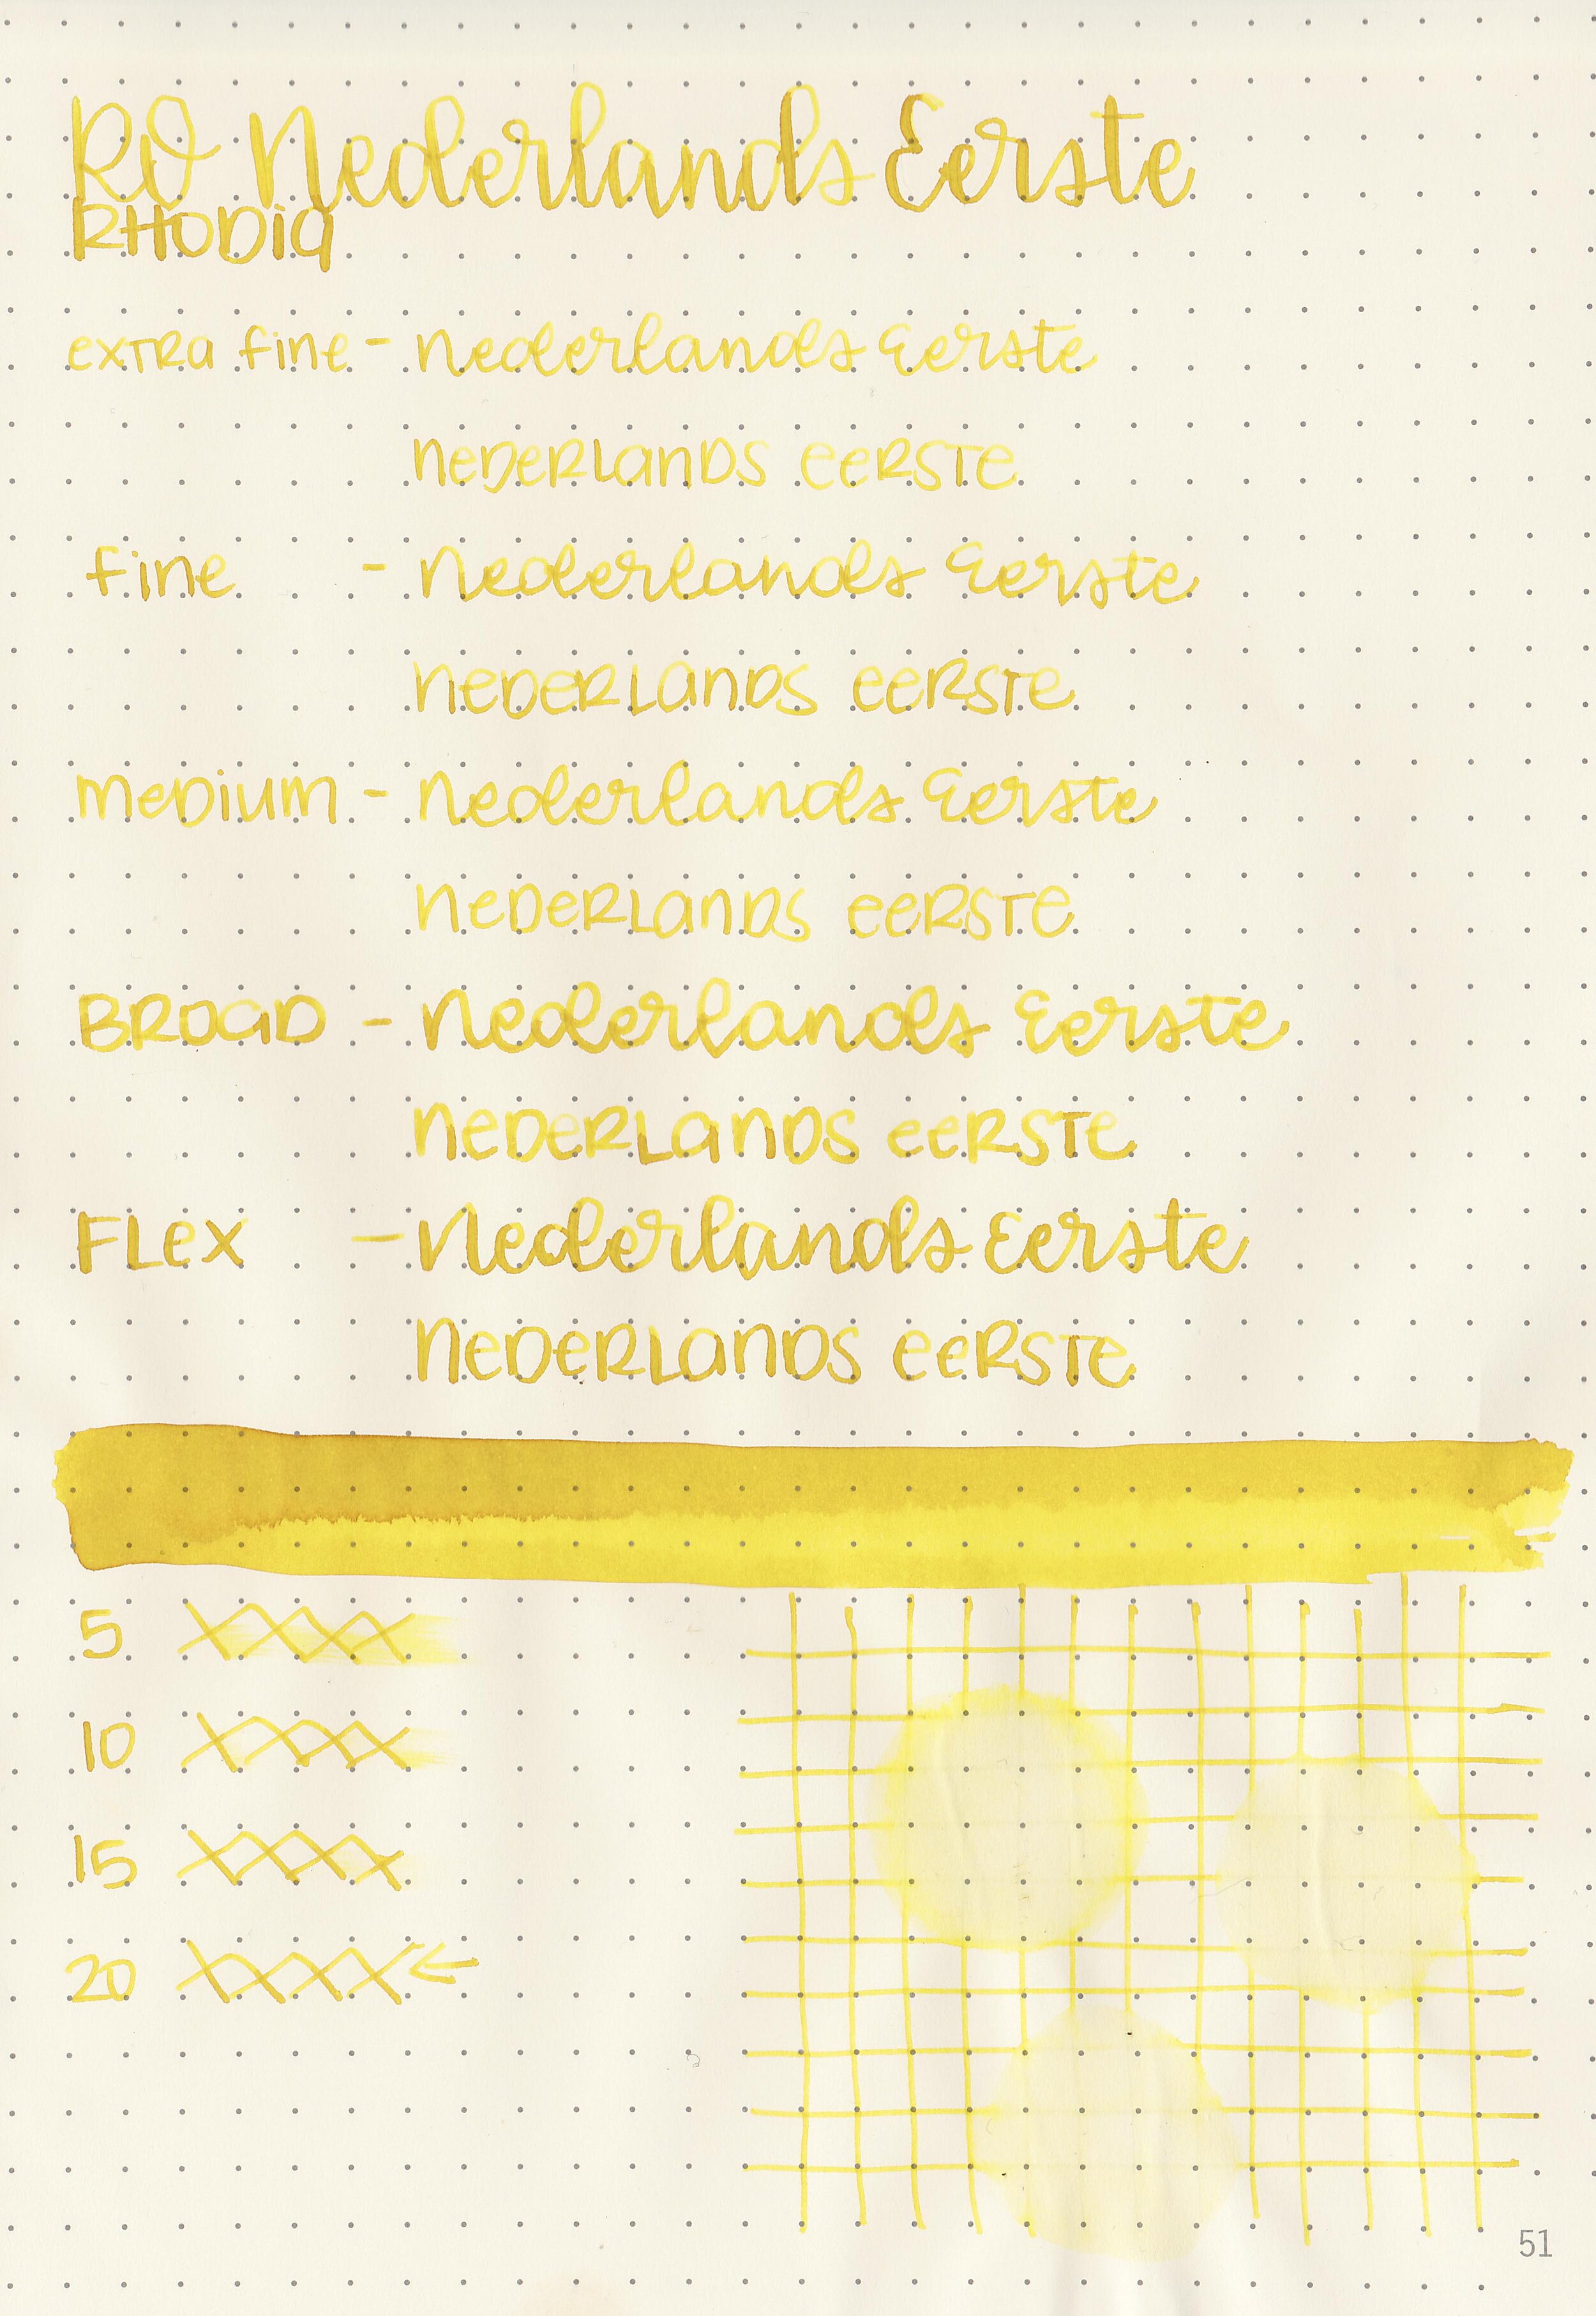 RO Nederlands Eerste
RHODia
exTRa fine - Nederlands Eerste
neDeRLanDS eeRSTe
fine - Nederlands Eerste
neDeRLanDS eeRSTe
meDium - Nederlands Eerste
neDeRLanDS eeRSTe
BROaD - Nederlands Eerste
neDeRLanDS eeRSTe
FLex - Nederlands Eerste
neDeRLanDS eeRSTe
5 XXXX
10 XXXX
15 XXXX
20 XXXX ←
51